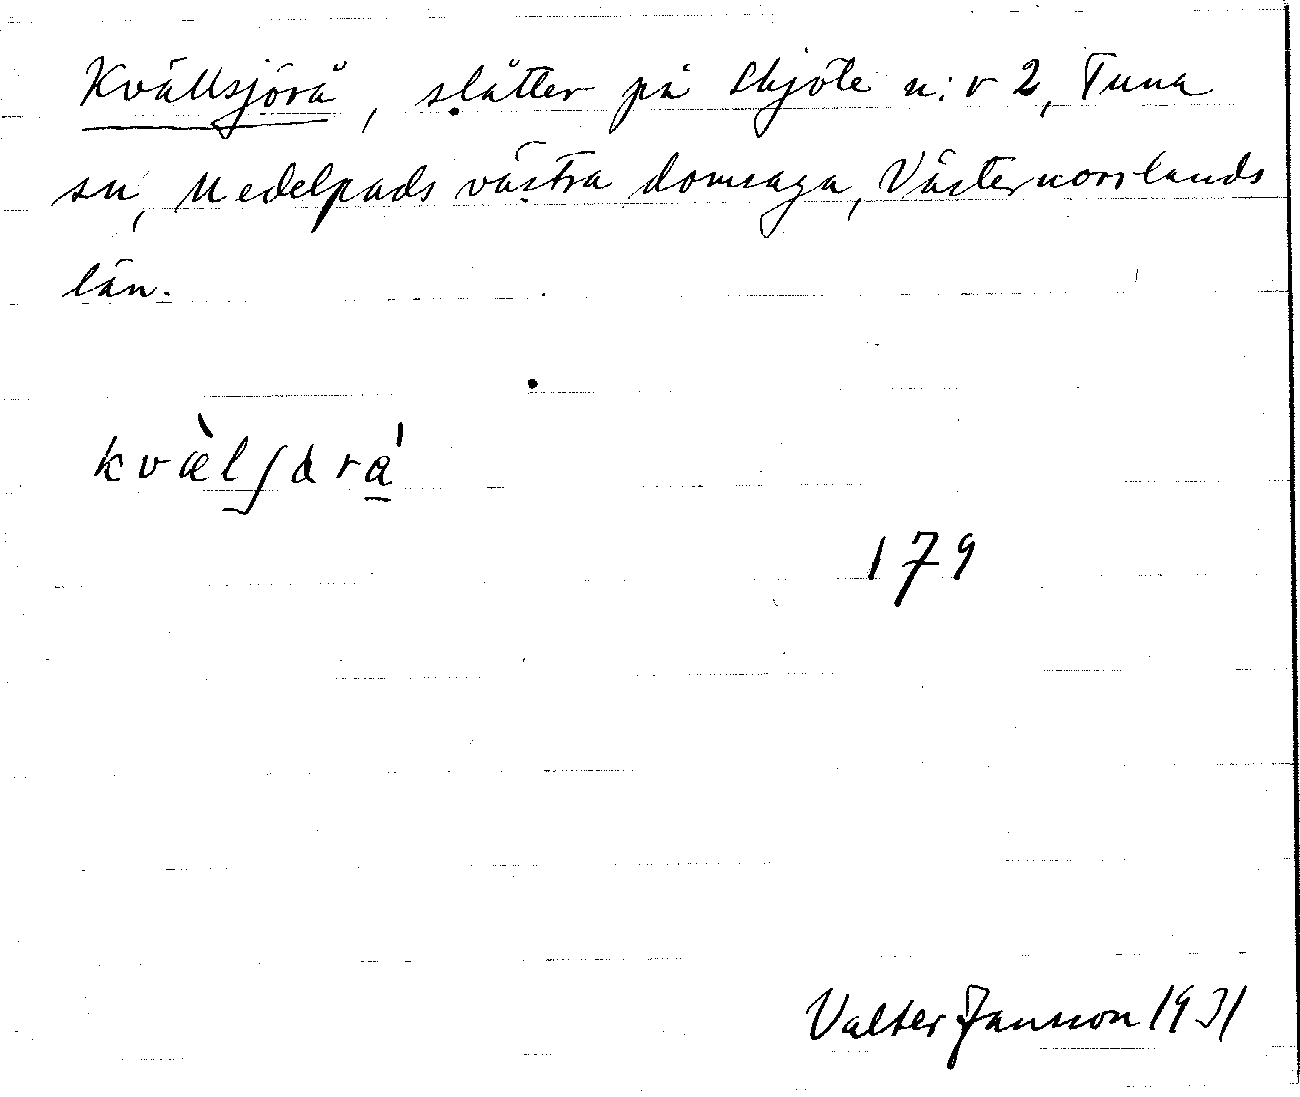 Kvällsjörå, slåtter på Skjöle n:r 2, Tuna
sn, Medelpads västra domsaga, Västernorrlands
län.
kvæ̀lʃàrá
179
Valter Jansson 1931